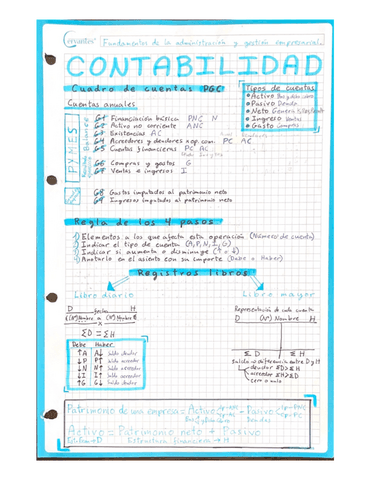 Cervantes
Fundamentos de la administración y gestión empresarial.
CONTABILIDAD
Cuadro de cuentas PGC
Tipos de cuentas
Activo Bos y derechos
Pasivo Deudas
Neto
Ingreso Ventas
Gasto Compras
Cuentas anuales
PYMES
Balance
G1 Financiación básica PNC N
G2 Activo no corriente ANC
G3 Existencias AC
G4 Acreedores y deudores x op. com. PC AC
G5 Cuentas financieras PC AC
G6 Compras y gastos G
G7 Ventas e ingresos I
G8 Gastos imputados al patrimonio neto
G9 Ingresos imputados al patrimonio neto
Regla de los 4 pasos
1) Elementos a los que afecta esta operación (Número de cuenta)
2) Indicar el tipo de cuenta (A, P, N, I, G)
3) Indicar si aumenta o disminuye (↑ ↓)
4) Anotarlo en el asiento con su importe (Debe o Haber)
Registros libros
Libro diario
Libro mayor
D fecha H
(Nº) Nombre a (Nº) Nombre
x
ΣD = ΣH
Representación de cada cuenta
D (Nº) Nombre H
Σ D Σ H
Saldo = diferencia entre D y H
deudor ΣD>ΣH
acreedor ΣH>ΣD
cero o nulo
Debe Haber
↑A A↓ Saldo deudor
↓P P↑ Saldo acreedor
↓N N↑ Saldo acreedor
↓I I↑ Saldo acreedor
↑G G↓ Saldo deudor
Patrimonio de una empresa = Activo - Pasivo
Bos y derechos Deudas
Activo = Patrimonio neto + Pasivo
Estructura financiera → H